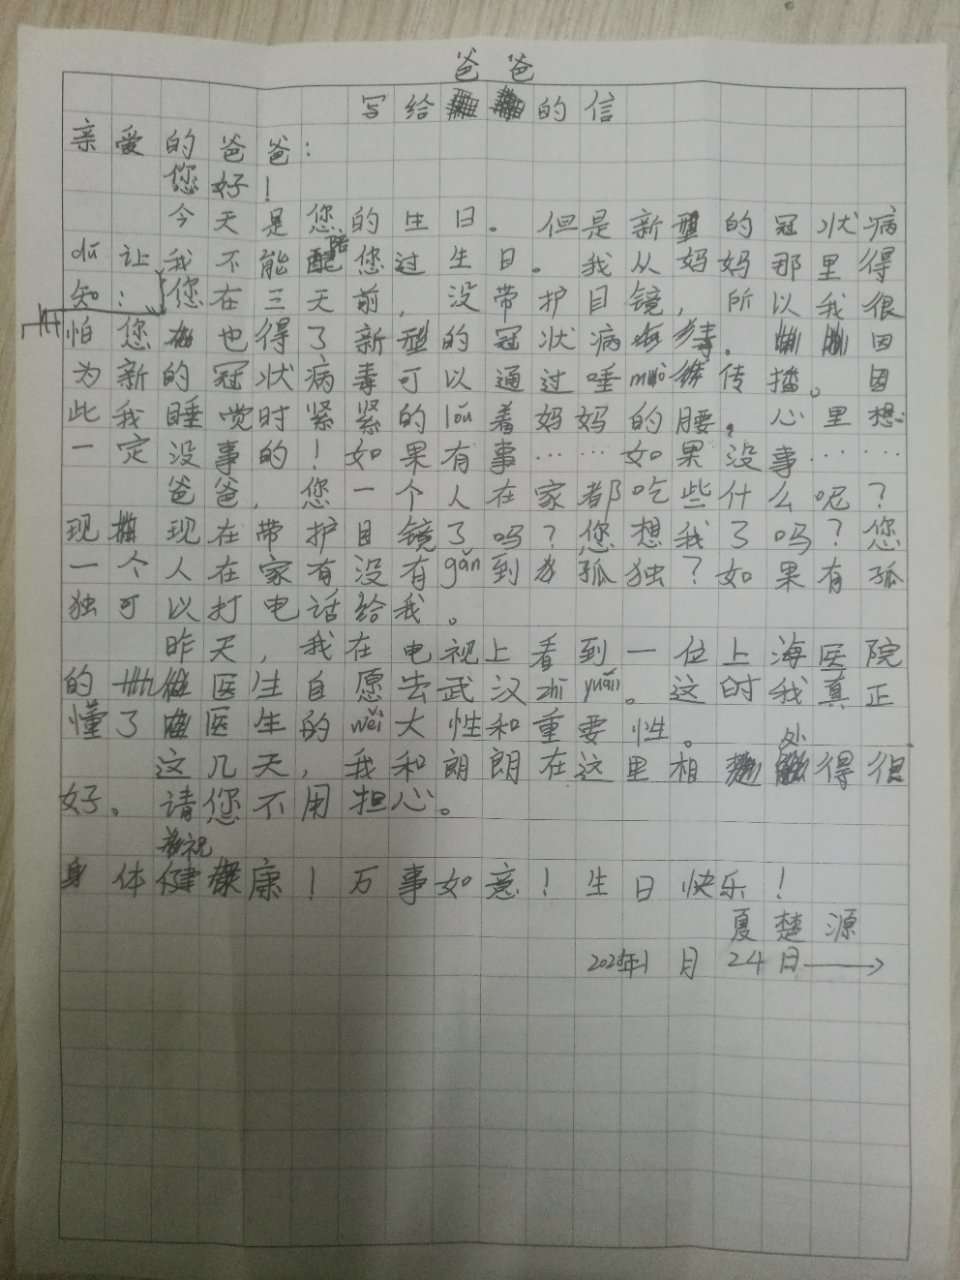 爸爸
写给的信
亲爱的爸爸：
您好！
今天是您的生日。但是新型的冠状病
dú让我不能陪您过生日。我从妈妈那里得
知：您在三天前，没带护目镜，所以我很
怕您也得了新型的冠状病毒。因
为新的冠状病毒可以通过唾mò传播。因
此我睡觉时紧紧的lǒu着妈妈的腰。心里想：
一定没事的！如果有事……如果没事……
爸爸，您一个人在家都吃些什么呢？
现现在带护目镜了吗？您想我了吗？您
一个人在家有没有gǎn到孤独？如果有孤
独可以打电话给我。
昨天，我在电视上看到一位上海医院
的医生自愿去武汉zhī yuán。这时我真正
懂了医生的wěi大性和重要性。
这几天，我和朗朗在这里相处得很
好。请您不用担心。
祝
身体健康！万事如意！生日快乐！
夏楚源
2020年1月24日